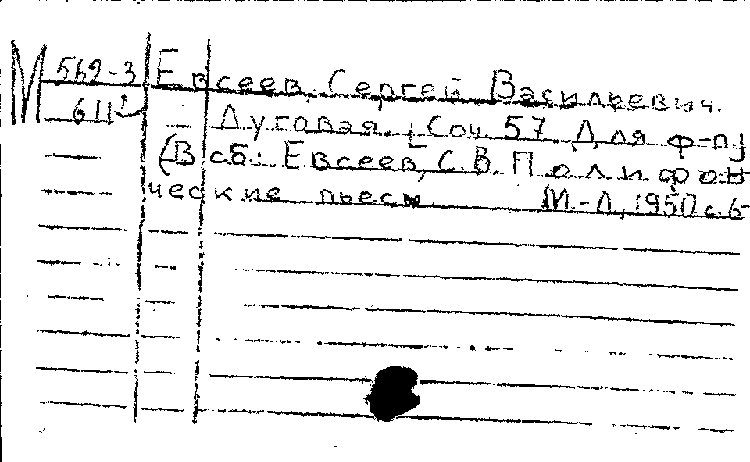 М 562-3 Евсеев, Сергей Васильевич.
611 Луговая. [Соч. 57. Для ф-п]
(В сб: Евсеев, С.В. Полифон
ческие пьесы М.-Л., 1950 с. 6-